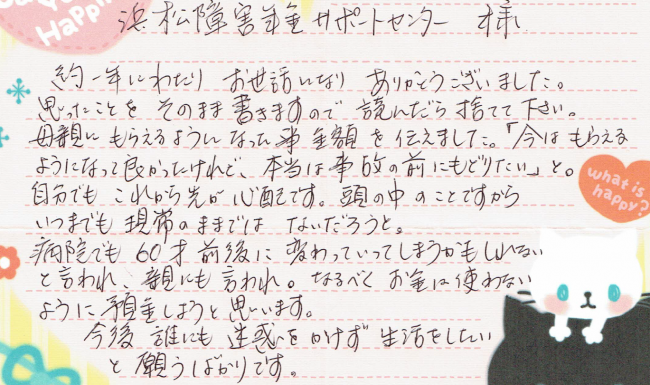 浜松障害年金サポートセンター 様
約一年にわたり お世話になり ありがとうございました。
思ったことを そのまま 書きますので 読んだら 捨てて 下さい。
母親に もらえるようになった事 金額 を 伝えました。「今は もらえる
ようになって 良かったけれど、本当は 事故の前にもどりたい」と。
自分でも これから先が 心配です。頭の中のことですから
いつまでも 現状のままでは ないだろうと。
病院でも 60才前後に 変わっていってしまうかもしれない
と言われ、親にも 言われ。なるべく お金は 使わない
ように 預金しようと 思います。
今後 誰にも 迷惑を かけず 生活をしたい
と 願うばかりです。
Happy
what is happy?